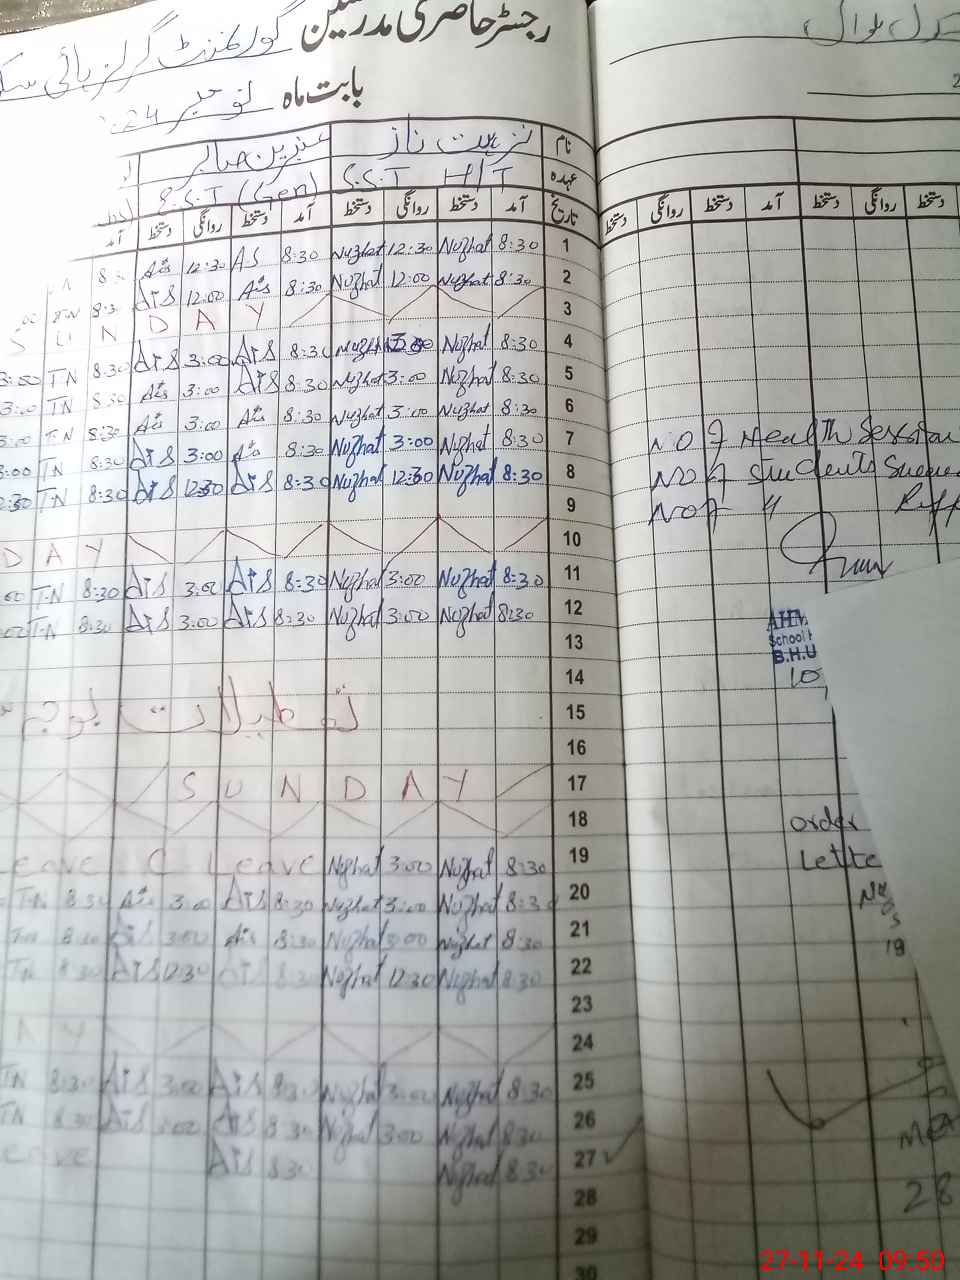 رجسٹر حاضری مدرسین گورنمنٹ گرلز ہائی
بابت ماہ نومبر 24
نام نزہت ناز عنبرین صابر
عہدہ S.S.T H/T S.S.T (Gen)
تاریخ آمد دستخط روانگی دستخط آمد دستخط روانگی دستخط آمد
دستخط روانگی دستخط آمد دستخط روانگی دستخط
1 8:30 Nuzhat 12:30 Nuzhat 8:30 AS 12:30 Ais
2 8:30 Nuzhat 12:00 Nuzhat 8:30 Ais 12:00 Ais 8:30 TN
3 SUNDAY
4 8:30 Nuzhat 3:00 Nuzhat 8:30 Ais 3:00 Ais 8:30 TN 3:00
5 8:30 Nuzhat 3:00 Nuzhat 8:30 Ais 3:00 Ais 8:30 TN 3:00
6 8:30 Nuzhat 3:00 Nuzhat 8:30 Ais 3:00 Ais 8:30 T-N 3:00
7 8:30 Nuzhat 3:00 Nuzhat 8:30 Ais 3:00 Ais 8:30 TN 3:00
8 8:30 Nuzhat 12:30 Nuzhat 8:30 Ais 12:30 Ais 8:30 T-N
9
10 DAY
11 8:30 Nuzhat 3:00 Nuzhat 8:30 Ais 3:00 Ais 8:30 T-N
12 8:30 Nuzhat 3:00 Nuzhat 8:30 Ais 3:00 Ais 8:30 T-N
13
14
15 تعطیلات بوجہ
16
17 SUNDAY
18
19 8:30 Nuzhat 3:00 Nuzhat Leave C Leave
20 8:30 Nuzhat 3:00 Nuzhat 8:30 Ais 3:00 Ais 8:30 T-N
21 8:30 Nuzhat 3:00 Nuzhat 8:30 Ais 3:00 Ais 8:30 TN
22 8:30 Nuzhat 12:30 Nuzhat 8:30 Ais 12:30 Ais 8:30 TN
23
24 A Y
25 8:30 Nuzhat 3:00 Nuzhat 8:30 Ais 3:00 Ais 8:30 TN
26 8:30 Nuzhat 3:00 Nuzhat 8:30 Ais 3:00 Ais 8:30 TN
27 8:30 Nuzhat 8:30 Ais eave
28
29
30
No of Health Session
No of Students
No of "
School
B.H.U
10
order
Lette
19
28
27-11-24 09:50